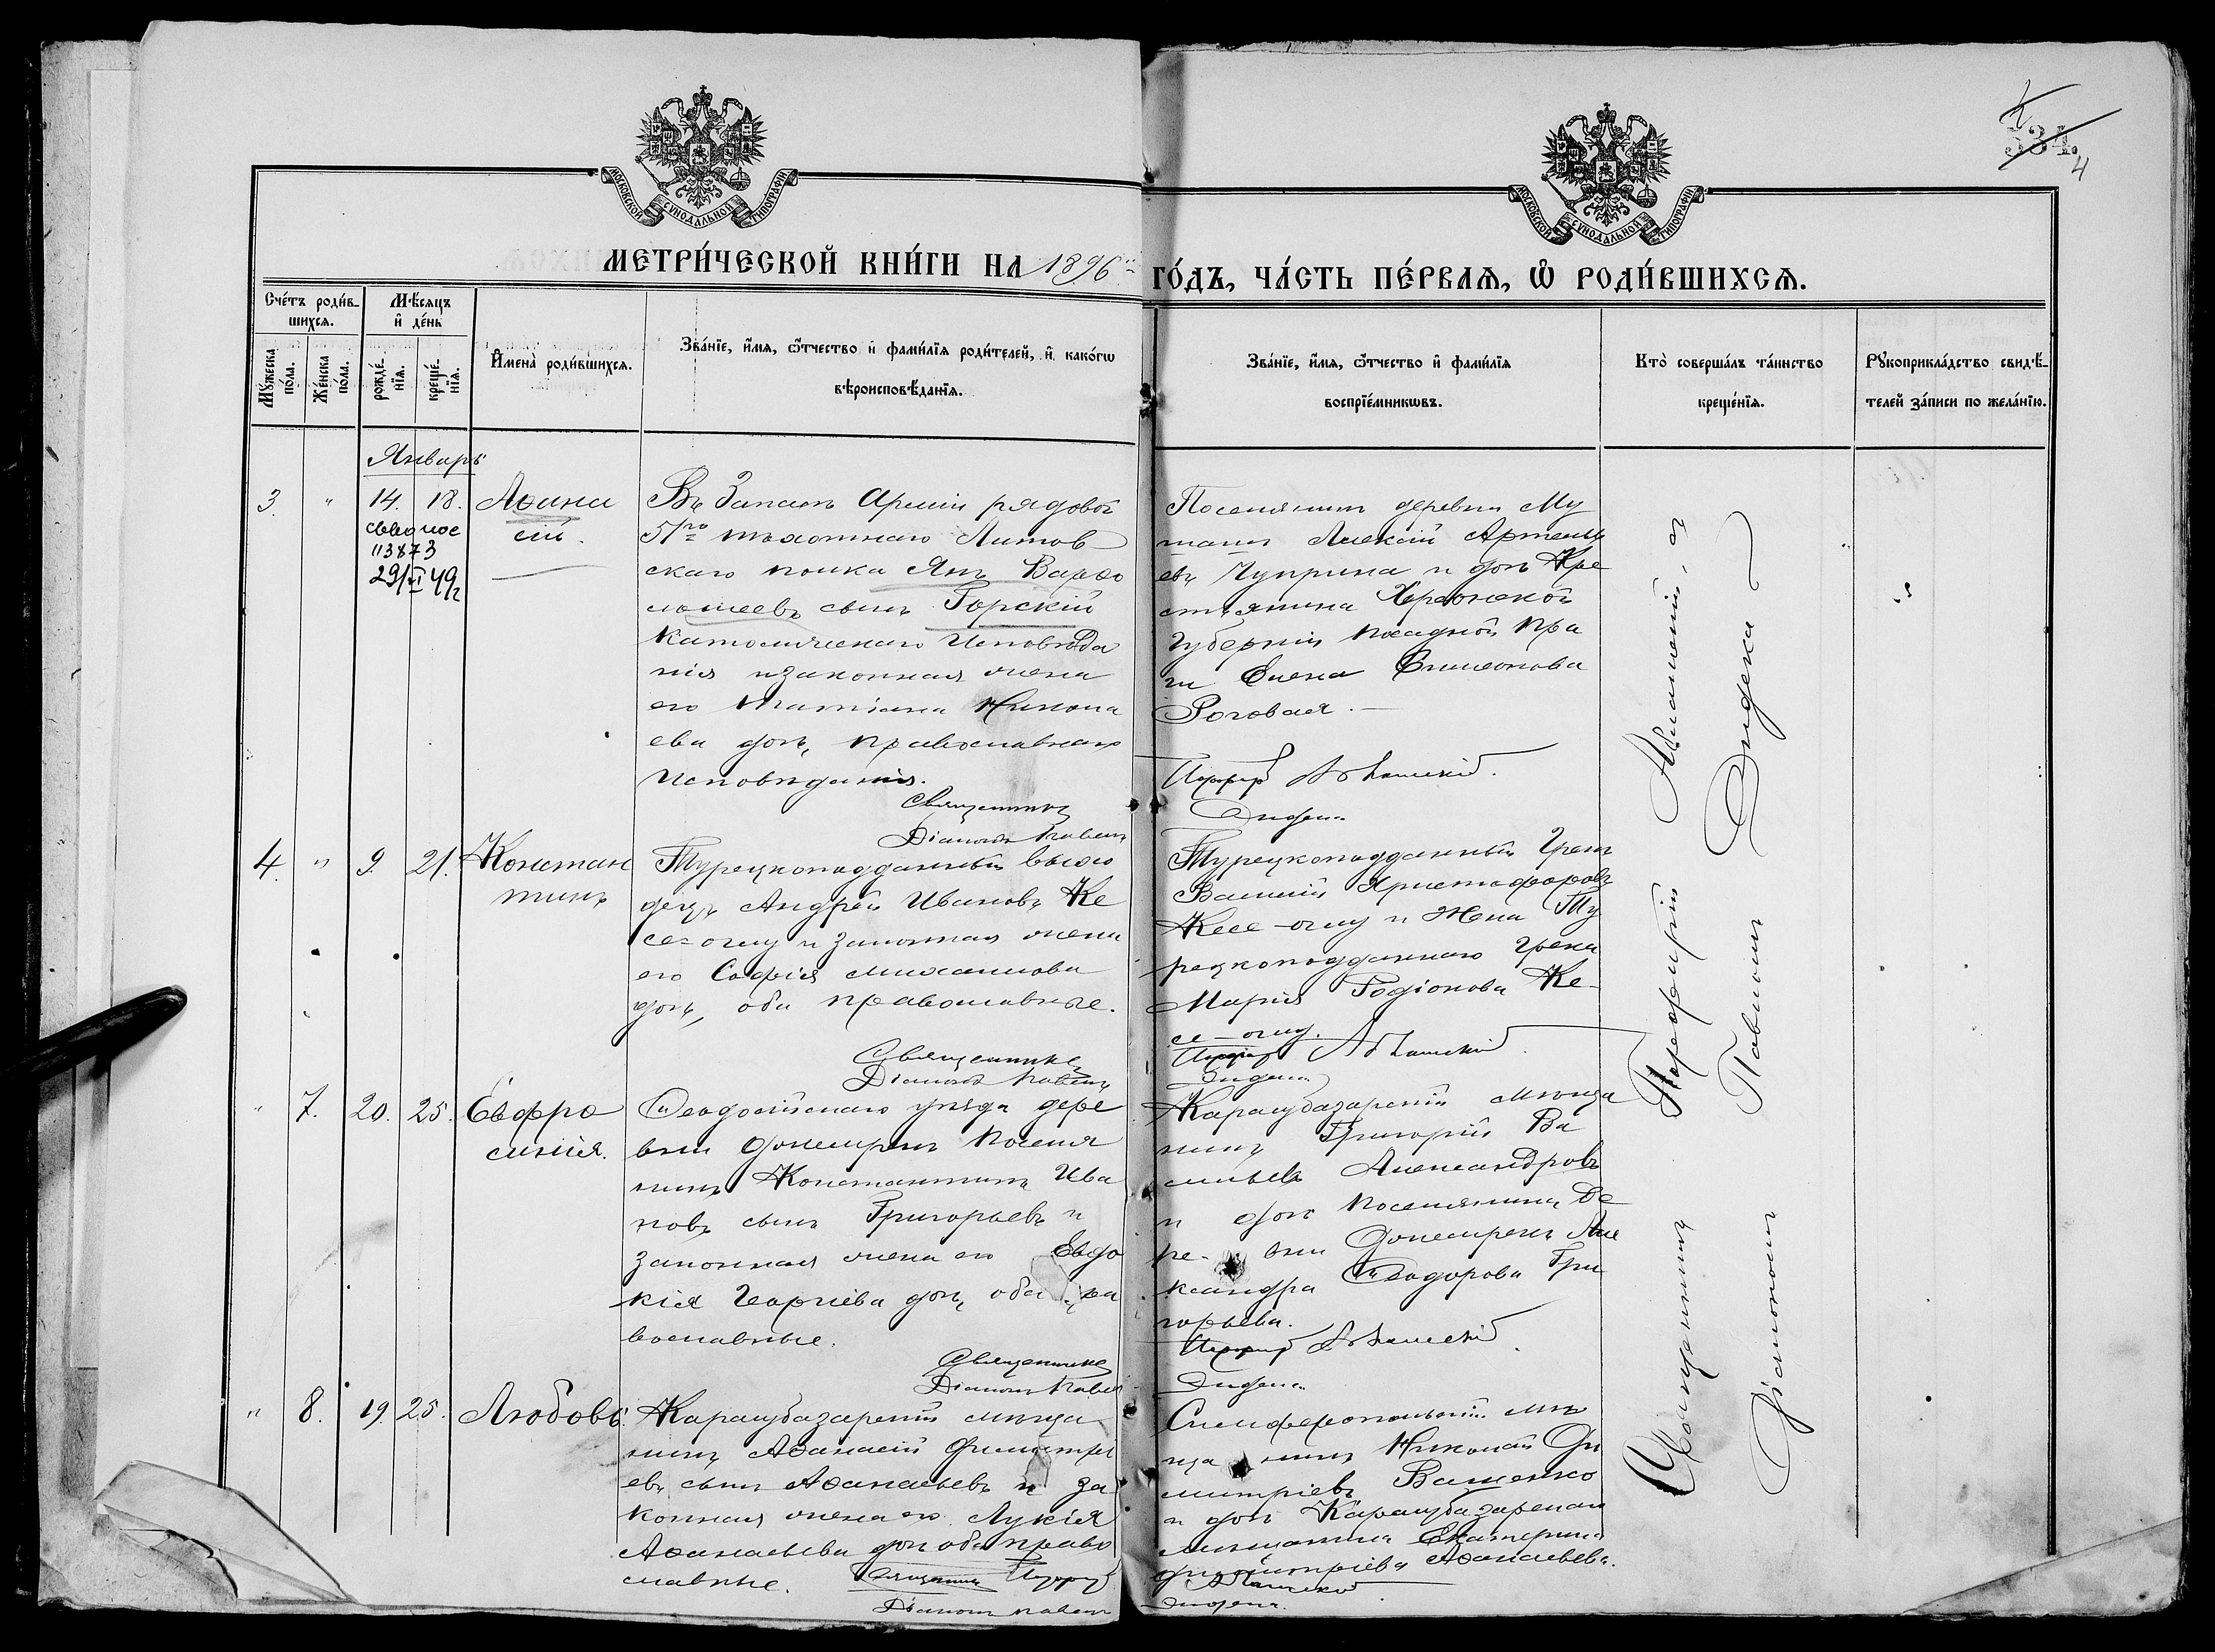 334.
4
МОСКОВСКОЙ СУНОДАЛЬНОЙ ТИПОГРАФІИ
МОСКОВСКОЙ СУНОДАЛЬНОЙ ТИПОГРАФІИ
МЕТРИ́ЧЕСКОЙ КНИ́ГИ НА 1896 ГО́ДЪ, ЧА́СТЬ ПЕ́РВАѦ, Ѡ҆ РОДИ́ВШИХСѦ.
Сче́тъ роди́в-
шихсѧ.
Мѣ́сѧцъ
и҆ де́нь
Мꙋ́жеска по́ла.
Же́нска по́ла.
рожде́-
нїѧ.
креще́-
нїѧ.
И҆мена̀ роди́вшихсѧ.
Зва́нїе, и҆́мѧ, ѻ҆́тчество и҆ фами́лїѧ роди́телей, и҆ како́гѡ
вѣроисповѣ́данїѧ.
Зва́нїе, и҆́мѧ, ѻ҆́тчество и҆ фами́лїѧ
воспрїе́мникѡвъ.
Кто̀ соверша́лъ та́инство
креще́нїѧ.
Рꙋкоприкла́дство свидѣ́-
телей за́писи по жела́нїю.
Январь
3. " 14. 18. Аѳана
сій.
113873
29/XI 49г
Въ Запасѣ Арміи рядовой
51го пѣхотнаго Литов
скаго полка Янъ Варѳо
ломеевъ сынъ Горскій
Католическаго Исповѣда
нія и законная жена
его Татіана Никола
ева дочь, православнаго
Исповѣданія.
Священникъ
Діаконъ Павелъ
Поселянинъ деревни Му
Алексій Артемь
евъ Чуприна и дочь Кре
стьянина Херсонской
Губерніи посадной
Елена Симеонова
Роговая.
Порфир
Дидена
4. " 9. 21. Констан
тинъ
Турецкоподданный
Андрей Ивановъ Ке
се-оглу и законная жена
его Софія Михаилова
дочь, оба православные.
Священникъ
Діаконъ Павелъ
Турецкоподданный Грекъ
Василій Христофоровъ
Кесе-оглу и Жена Ту
рецкоподданнаго Грека
Марія Родіонова Ке-
се-оглу.
Дидена
" 7. 20. 25. Евфро
синія.
Ѳеодосійскаго уѣзда дере
вни поселя
нинъ Константинъ Ива
новъ сынъ Григорьевъ и
законная жена его Евдо
кія Георгіева дочь, оба пра
вославные.
Священникъ
Діаконъ Павелъ
Карасубазарскій мѣща
нинъ Григорій Ва
сильевъ Александровъ
и дочь поселянина Де
ре-вни Але
ксандра Ѳеодорова Гри
горьева.
Дидена
" 8. 19. 25. Любовь.
Карасубазарскій мѣща
нинъ Аѳанасій Димитрі
евъ сынъ Аѳанасьевъ и за
конная жена его Лукія
Аѳанасьева дочь оба право
славные.
Священникъ Порфир
Діаконъ Павелъ
Симферопольскій мѣ
ща нинъ Николай Ди
митріевъ Ващенко
и дочь Карасубазарскаго
мѣщанина Екатерина
Димитріева Аѳанасьева.
Дидена.
Священникъ Порфирій
Діаконъ Павелъ Дидена